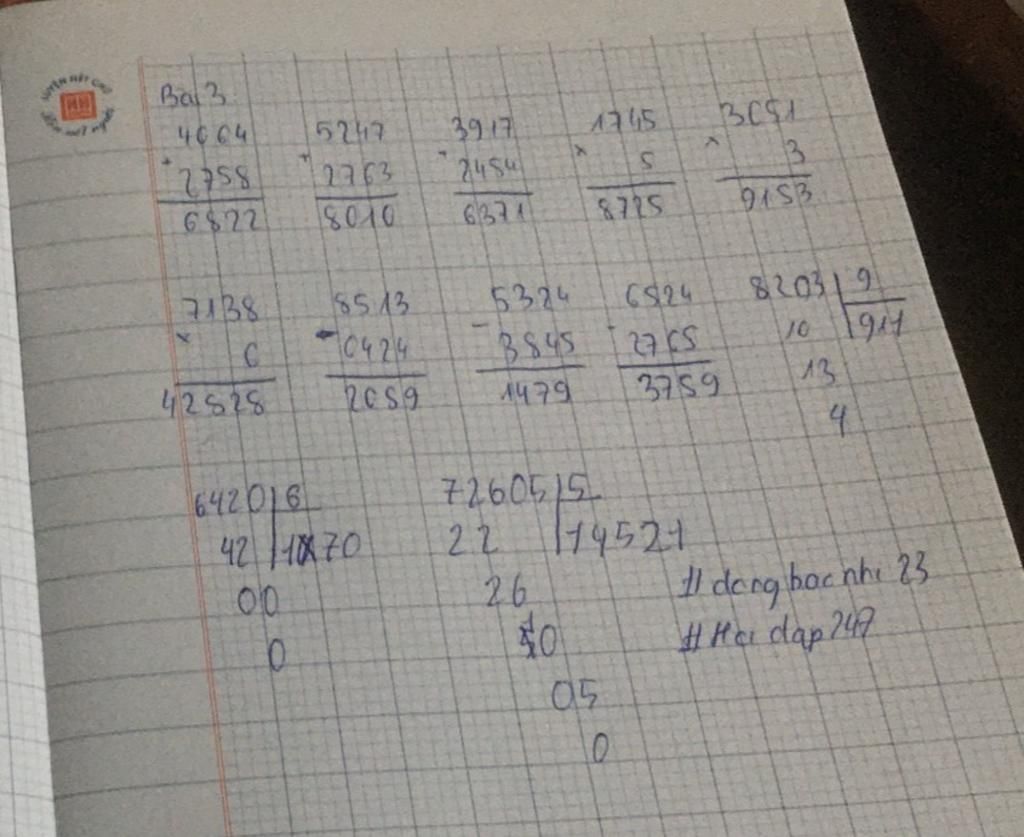 LUYỆN NÉT CHỮ
Rèn nết người
Bài 3
4064 5247 3917 1745 3051
+ 2758 + 2763 + 2454 × 5 × 3
6822 8010 6371 8725 9153
7138 8513 5324 6524 8203 9
× 6 - 6424 - 3845 - 2765 10 911
42828 2089 1479 3759 13
4
6420 6 72605 5
42 1070 22 14521
00 26 #dongbacnhi 23
0 10 #Hoi dap 247
05
0